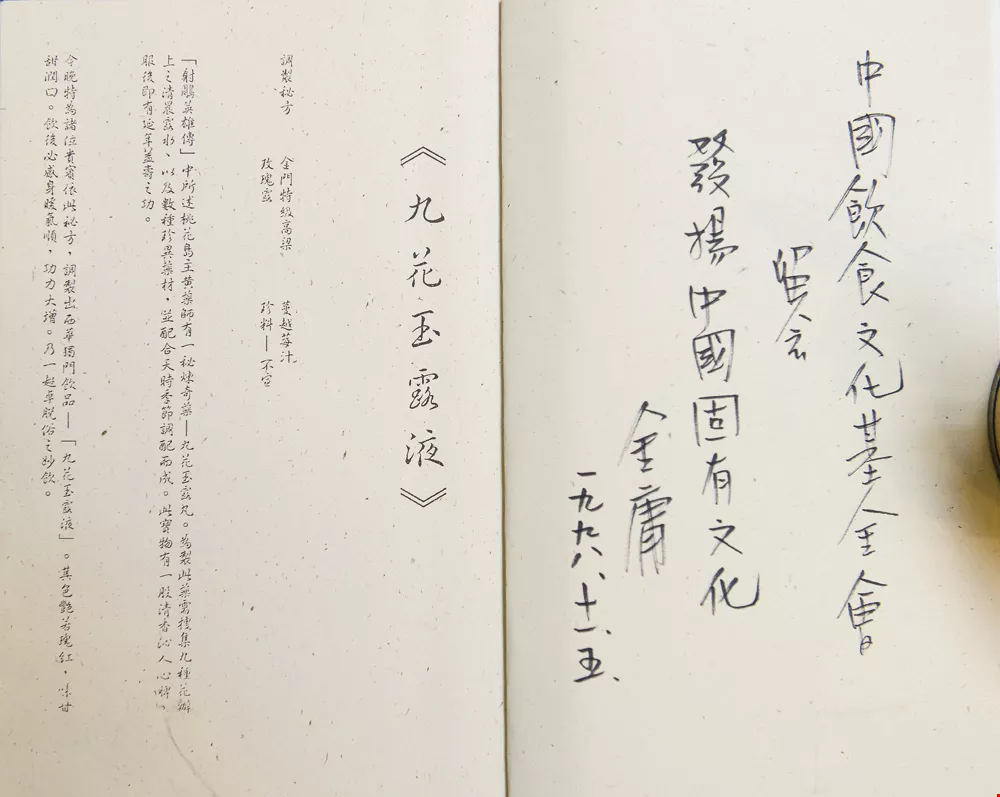 中國飲食文化基金會
留念
發揚中國固有文化
金庸
一九九八、十一、五、
《九花玉露液》
調製秘方
金門特級高梁
蔓越莓汁
玫瑰露
珍料—不宣
「射鵰英雄傳」中所述桃花島主黃藥師有一秘煉奇藥—九花玉露丸。為製此藥需搜集九種花瓣
上之清晨露水、以及數種珍異藥材，並配合天時季節調配而成。此寶物有一股清香沁人心脾，
服後即有延年益壽之功。
今晚特為諸位貴賓依此秘方，調製出西華獨門飲品—「九花玉露液」。其色艷若瑰紅，味甘
甜潤口。飲後必感身暖氣順，功力大增。乃一超卓脫俗之妙飲。